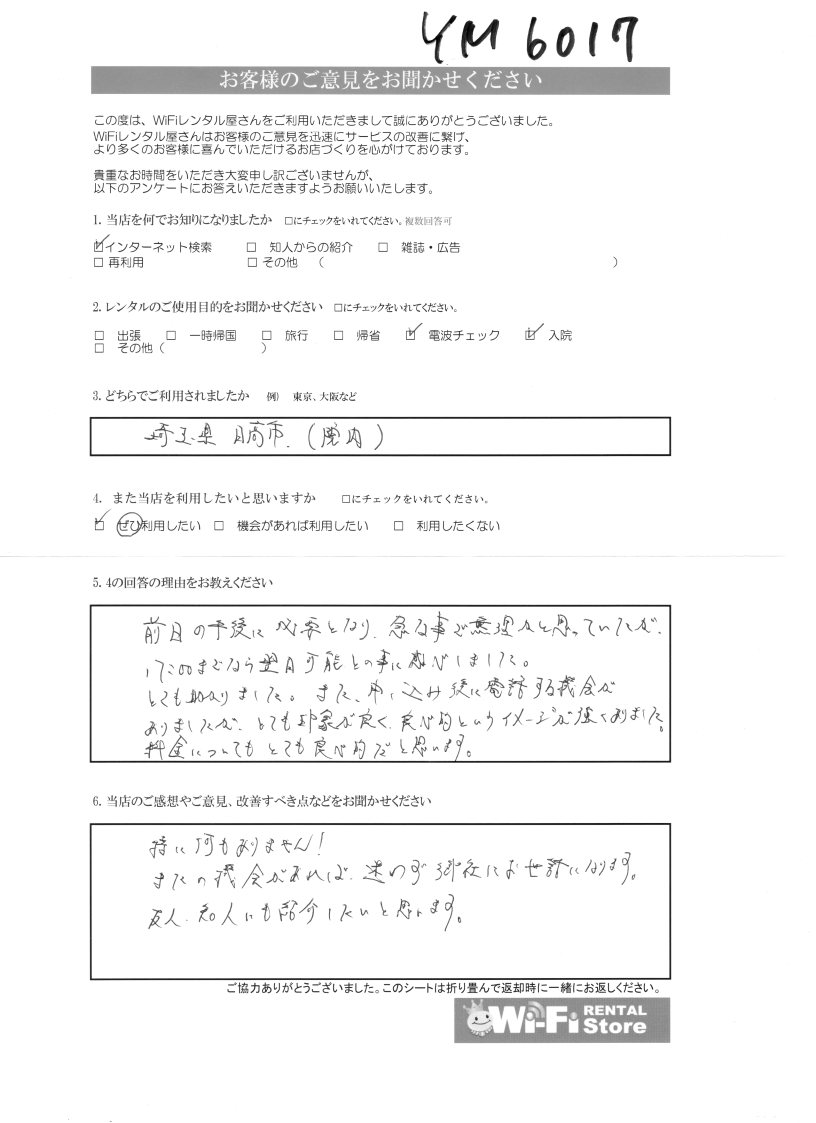 YM6017
お客様のご意見をお聞かせください
この度は、WiFiレンタル屋さんをご利用いただきまして誠にありがとうございました。
WiFiレンタル屋さんはお客様のご意見を迅速にサービスの改善に繋げ、
より多くのお客様に喜んでいただけるお店づくりを心がけております。
貴重なお時間をいただき大変申し訳ございませんが、
以下のアンケートにお答えいただきますようお願いいたします。
1. 当店を何でお知りになりましたか □にチェックをいれてください。複数回答可
☑インターネット検索 □ 知人からの紹介 □ 雑誌・広告
□ 再利用 □ その他 ( )
2. レンタルのご使用目的をお聞かせください □にチェックをいれてください。
□ 出張 □ 一時帰国 □ 旅行 □ 帰省 ☑ 電波チェック ☑ 入院
□ その他 ( )
3. どちらでご利用されましたか 例) 東京、大阪など
埼玉県 日高市. (院内)
4. また当店を利用したいと思いますか □にチェックをいれてください。
☑ ぜひ利用したい □ 機会があれば利用したい □ 利用したくない
5. 4の回答の理由をお教えください
前日の午後に必要となり、急な事で無理かと思っていたが、
までなら翌日可能との事に感心しました。
とても助かりました。また、申し込み後に電話する機会が
ありましたが、とても印象が良く、良心的というイメージが強くありました。
料金についてもとても良心的だと思います。
6. 当店のご感想やご意見、改善すべき点などをお聞かせください
特に何もありません!
またの機会があれば、迷わず御社にお世話になります。
友人、知人にも紹介したいと思います。
ご協力ありがとうございました。このシートは折り畳んで返却時に一緒にお返しください。
Wi-Fi RENTAL Store